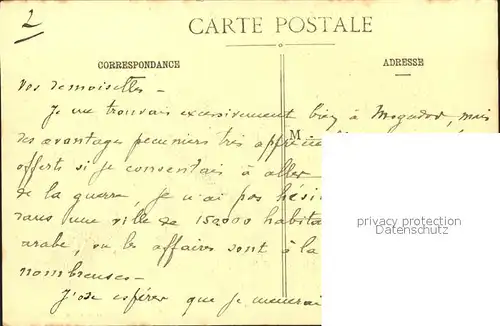 2
CARTE POSTALE
CORRESPONDANCE
ADRESSE
vos demoiselles –
Je me trouvais excessivement bien à Mogador, mais
des avantages pecuniers très
M
offerts si je consentais à aller
de la guerre, je n'ai pas
dans une ville de 150000
arabe, ou les affaires sont à la
nombreuses –
J'ose espérer que je
privacy protection
Datenschutz